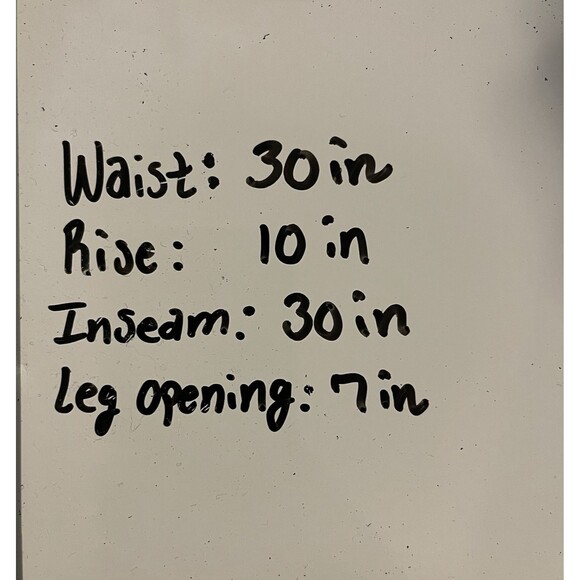 Waist: 30 in
Rise: 10 in
Inseam: 30 in
Leg opening: 7 in